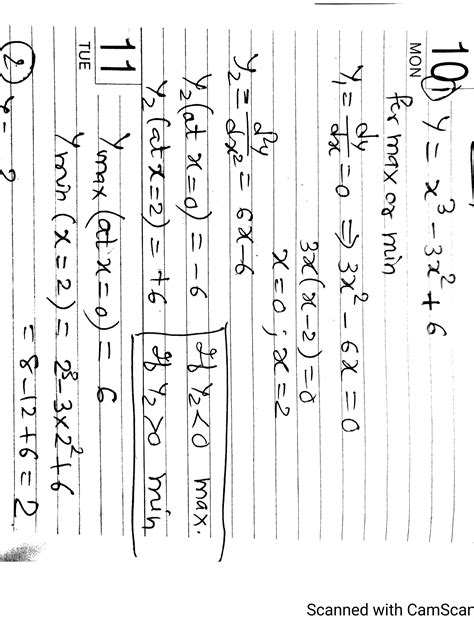 10 MON
1) y = x³ - 3x² + 6
for max or min
y₁ = dy/dx = 0 ⇒ 3x² - 6x = 0
3x(x-2) = 0
x = 0 ; x = 2
y₂ = dy/dx² = 6x - 6
y₂ (at x = 0) = -6 If y₂ < 0 max.
y₂ (at x = 2) = +6 If y₂ > 0 min
11 TUE
ymax (at x = 0) = 6
ymin (x = 2) = 2³ - 3×2² + 6
= 8 - 12 + 6 = 2
2) y =
Scanned with CamScan